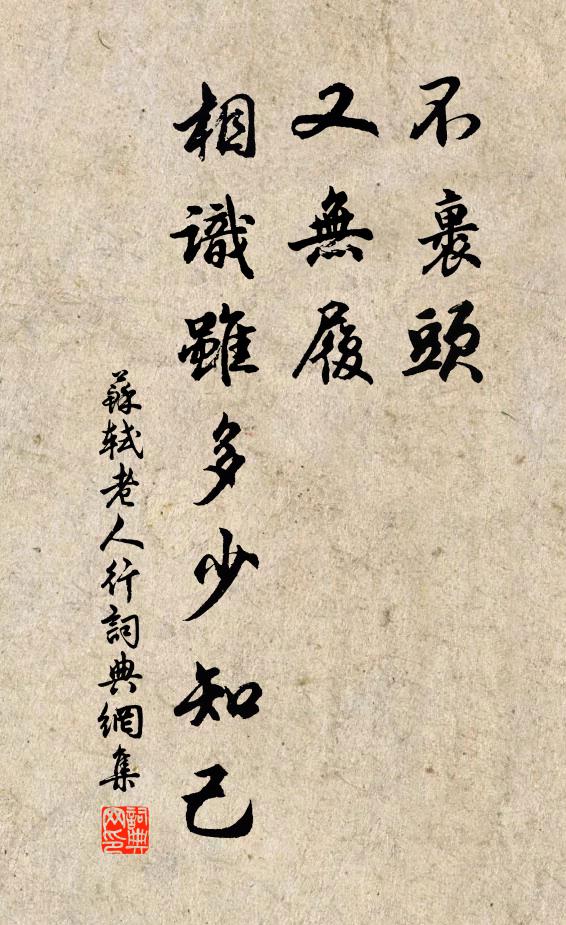 不裹頭
又無履
相識雖多少知己
蘇軾老人行詞典網集
詞典网印